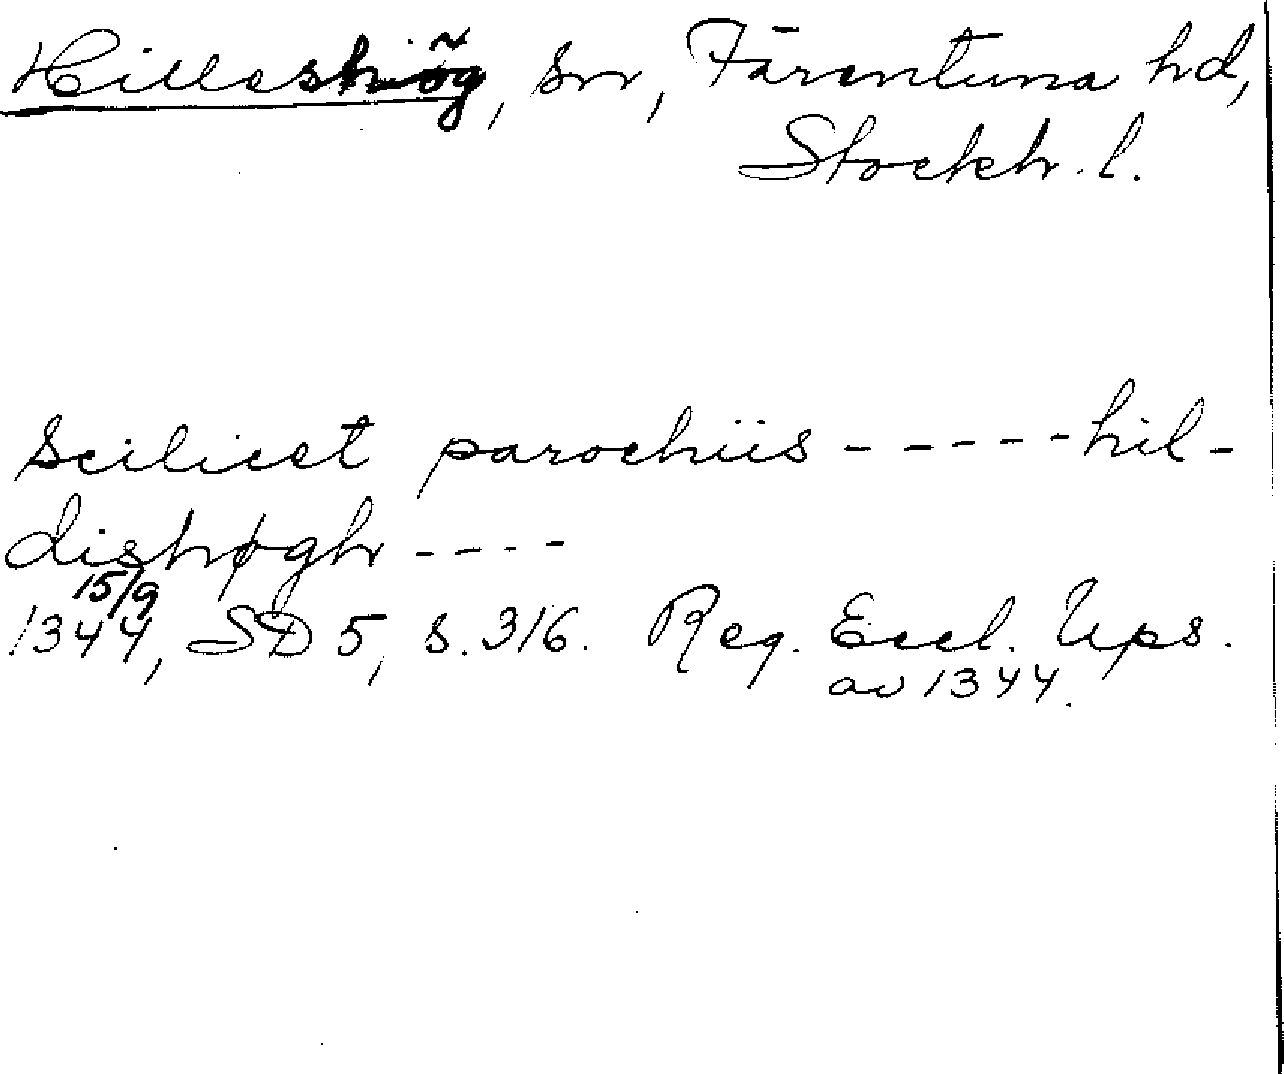 Hilleshög, sn, Färentuna hd,
Stockh. l.
Scilicet parochiis ----- hil-
dishøgh ----
15/9
1344, SD 5, s. 316. Reg. Eccl. Ups.
av 1344.